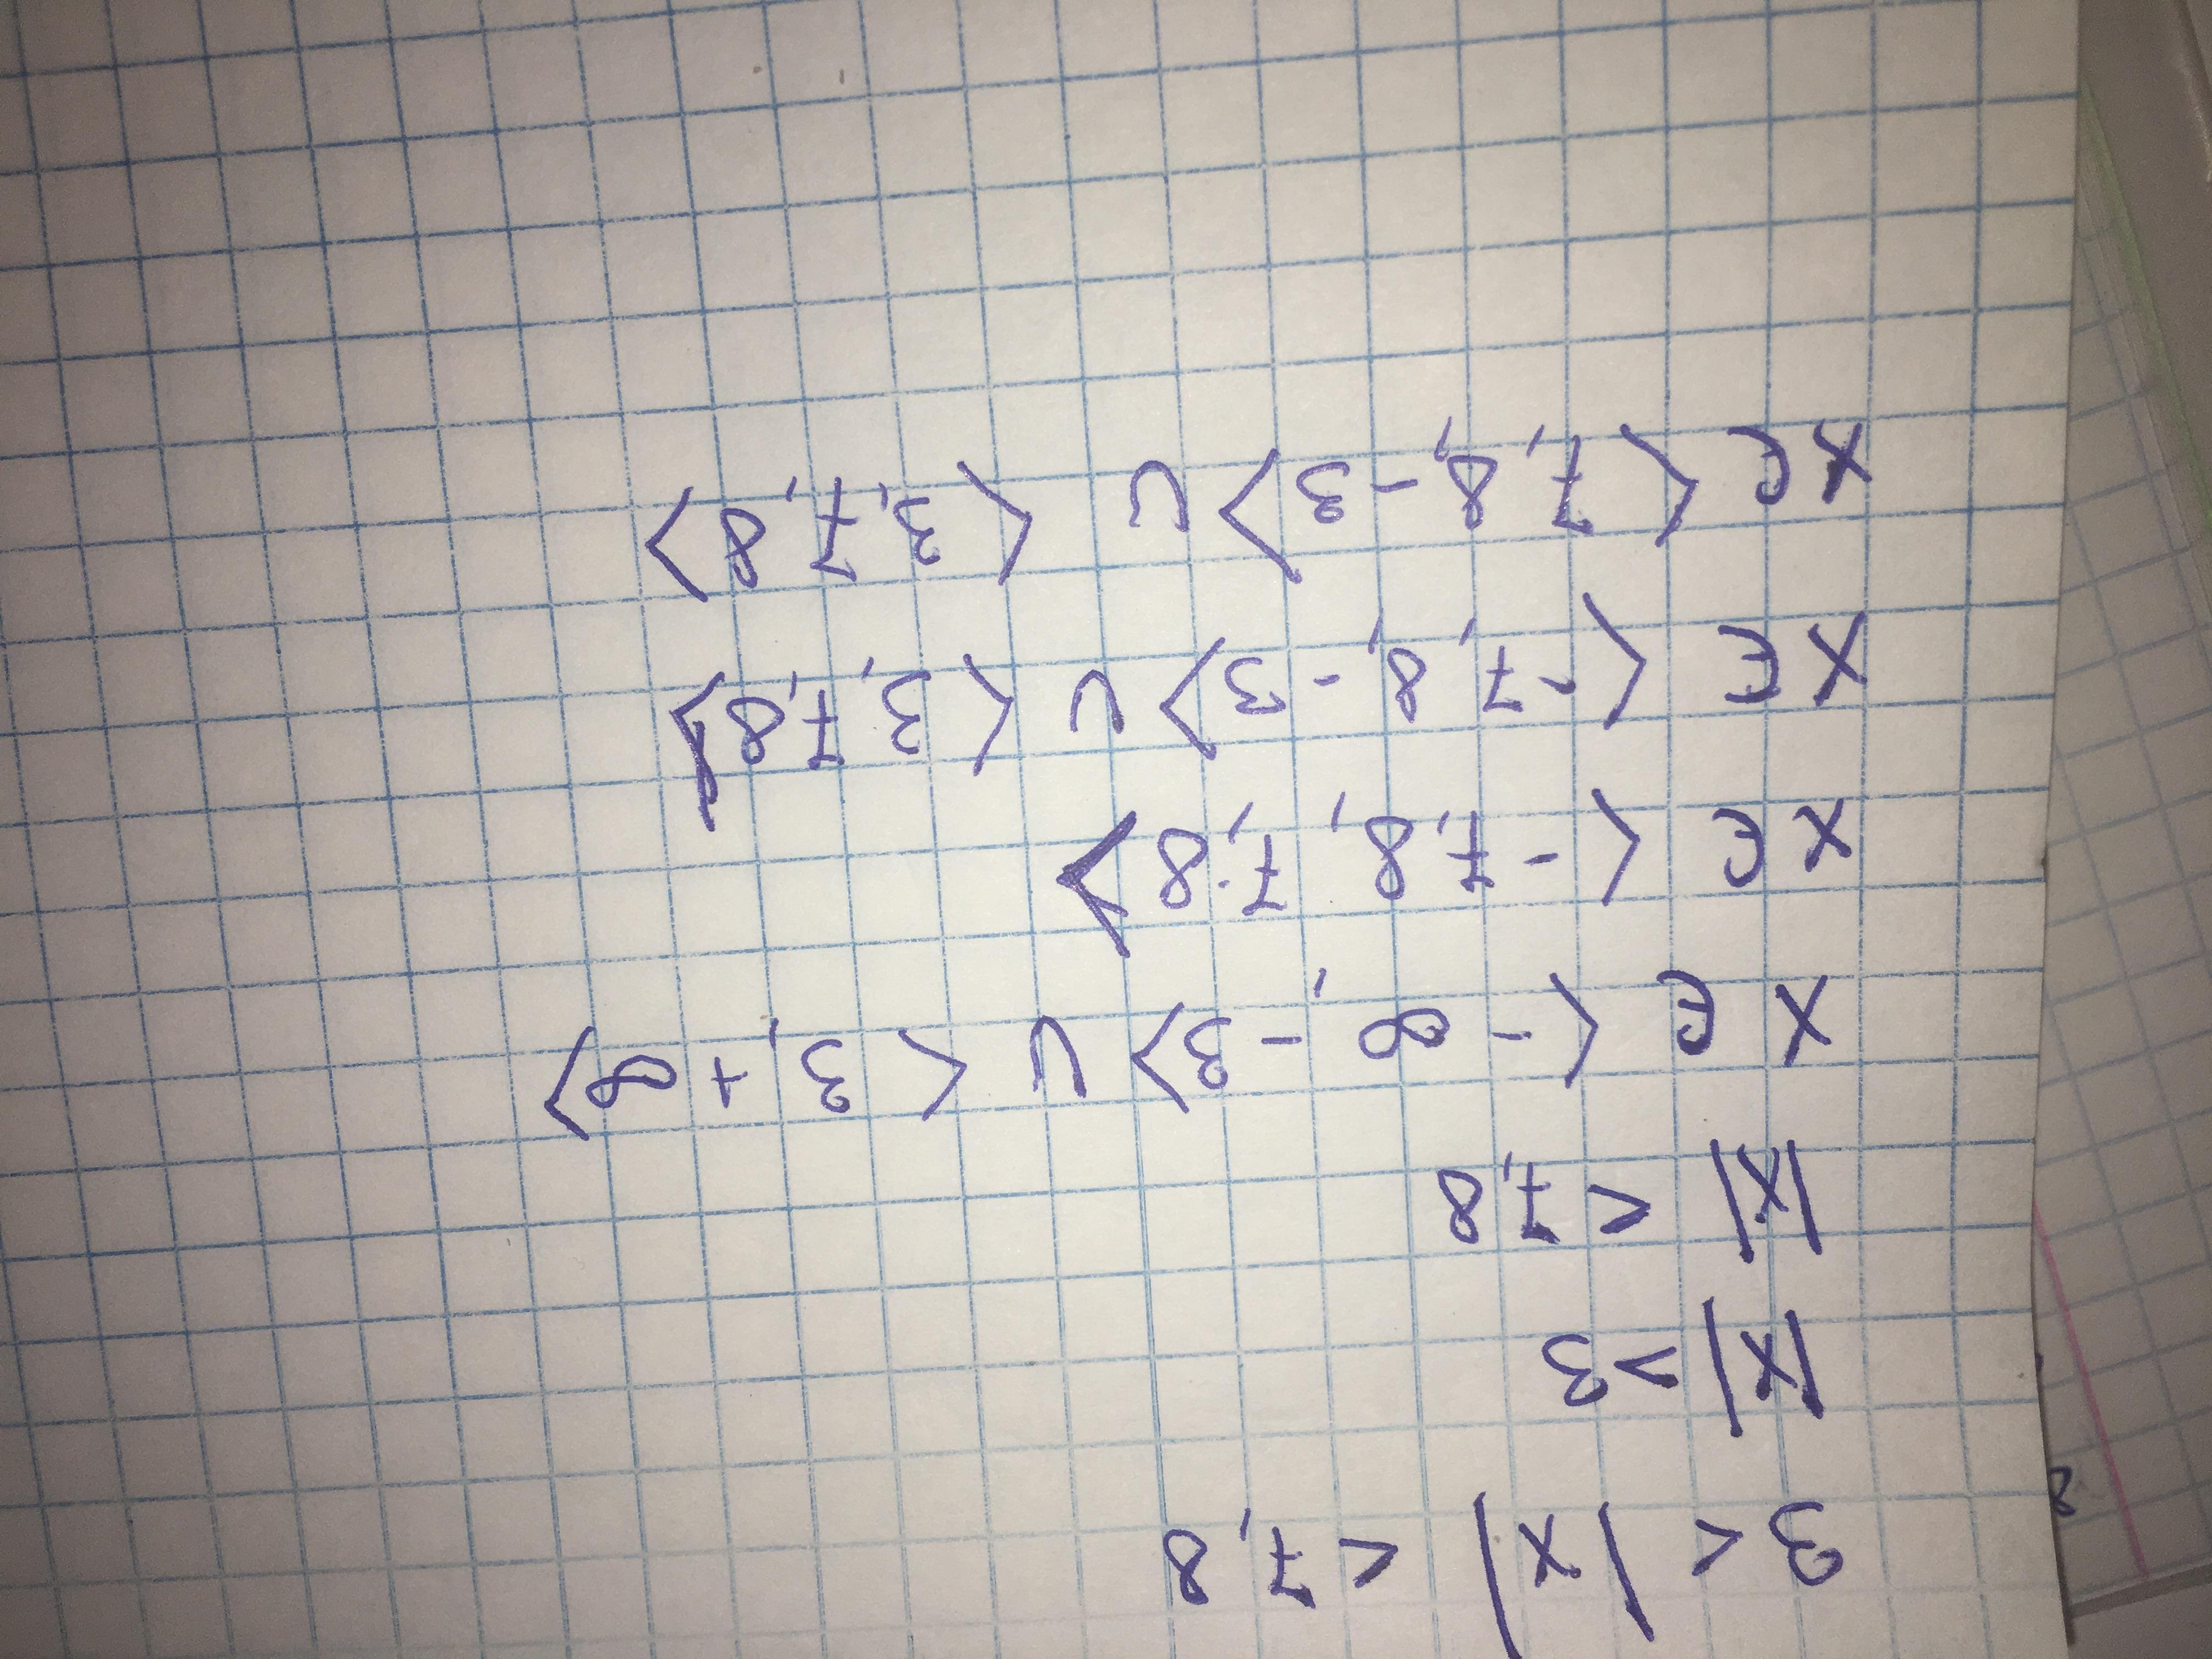 3 < |x| < 7,8
|x| > 3
|x| < 7,8
x ∈ ⟨-∞, -3⟩ ∪ ⟨3, +∞⟩
x ∈ ⟨-7,8, 7,8⟩
x ∈ ⟨-7,8, -3⟩ ∪ ⟨3, 7,8⟩
x ∈ ⟨7,8, -3⟩ ∪ ⟨3, 7,8⟩